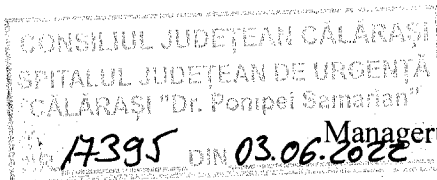 CONSILIUL JUDEȚEAN CĂLĂRAȘI
SPITALUL JUDEȚEAN DE URGENȚĂ
CĂLĂRAȘI "Dr. Pompei Samarian"
17395 DIN 03.06.2022
Manager